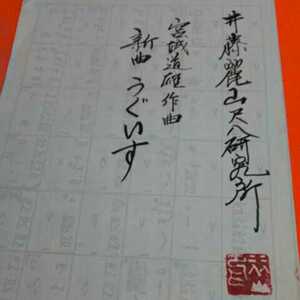 井藤麗山尺八研究所
宮城道雄作曲
新曲うぐいす